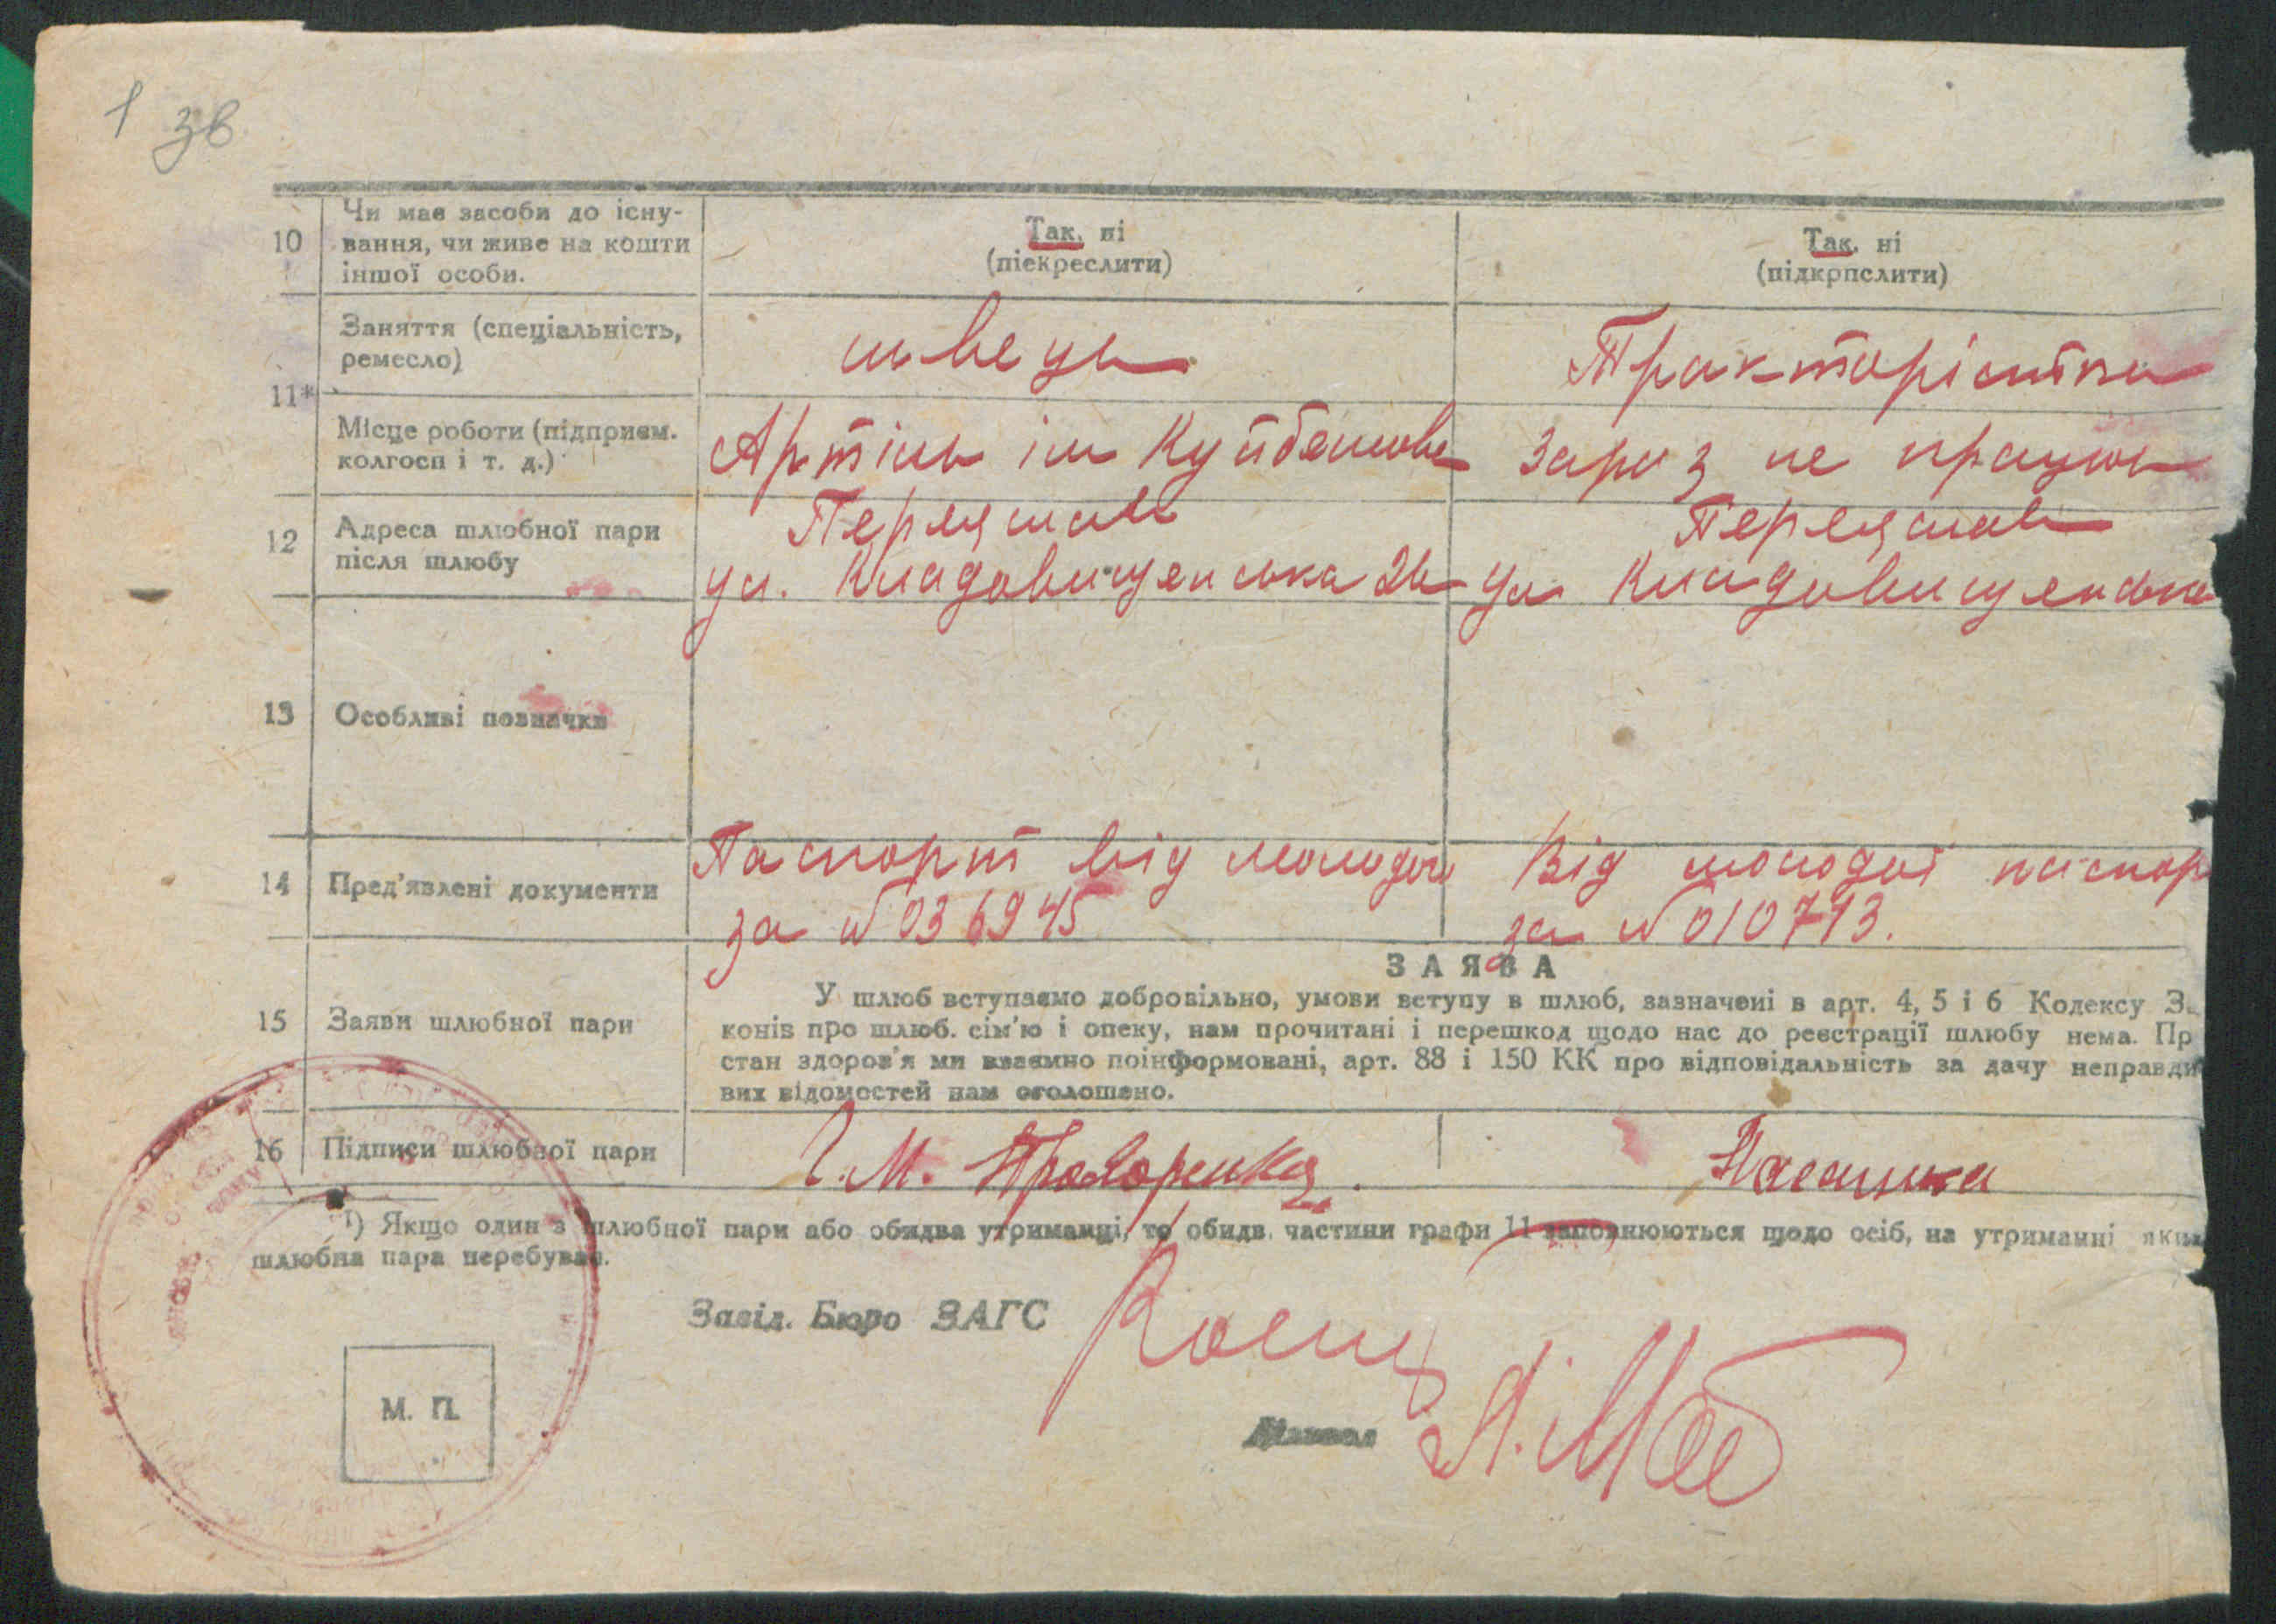 1 зв
10
Чи має засоби до існу-
вання, чи живе на кошти
іншої особи.
Так, ні
(піекреслити)
Так. ні
(підкрпслити)
11*
Заняття (спеціальність,
ремесло)
швець
Тракторістка
Місце роботи (підприєм.
колгосп і т. д.)
Артіль ім Куйбешова
Зараз не працює
12
Адреса шлюбної пари
після шлюбу
Переяслав
ул. Кладовищенська 26
Переяслав
ул Кладовищенська
13
Особливі позначки
14
Пред'явлені документи
Паспорт від молодого
за № 036945
Від молодої паспор
за № 010713.
ЗАЯВА
15
Заяви шлюбної пари
У шлюб вступаємо добровільно, умови вступу в шлюб, зазначені в арт. 4, 5 і 6 Кодексу За
конів про шлюб. сім'ю і опеку, нам прочитані і перешкод щодо нас до реєстрації шлюбу нема. Пр
стан здоров'я ми взаємно поінформовані, арт. 88 і 150 КК про відповідальність за дачу неправди
вих відомостей нам оголошено.
16
Підписи шлюбної пари
Г. М. Прохоренко
¹) Якщо один з шлюбної пари або обидва утриманці, то обидв. частини графи 11 заповнюються щодо осіб, на утриманні яких
шлюбна пара перебуває.
Завід. Бюро ЗАГС
М. П.